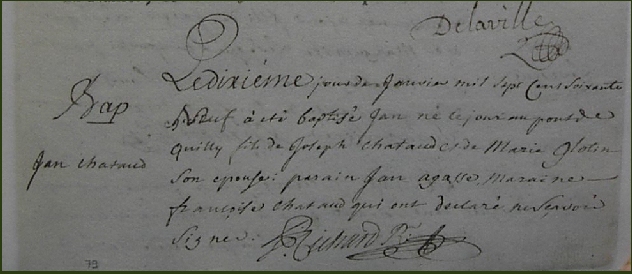 Delaville
Le dixiéme jour de Janvier mil sept Cent soixante
Bap
& Neuf à été baptisé Jan né le jour au pont de
Quilly fils de Joseph chataud & de Marie Glotin
Jan chataud
Son epouse: parain Jan agasse, Maraene
françoise Chataud qui ont declaré ne sçavoir
Signer. Richard
79